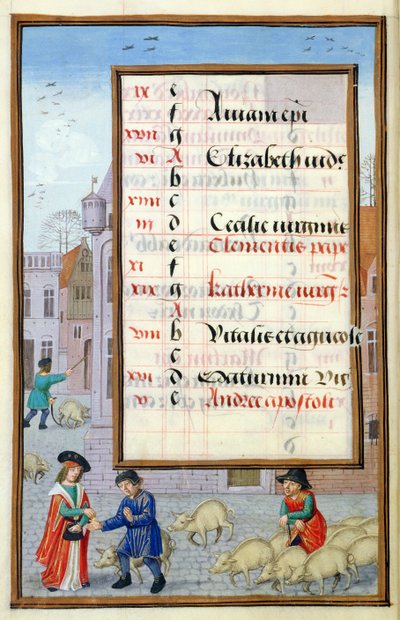 ix e
f Aniani epi
xvii g
vi A Elizabeth vide
b
xiiii c
iii d Cecilie virginis
e Clementis pape
xi f
xix g Katherine virgs
A
viii b Vitalis et agricole
c
xvi d Saturnini Vig
v e Andree apostoli